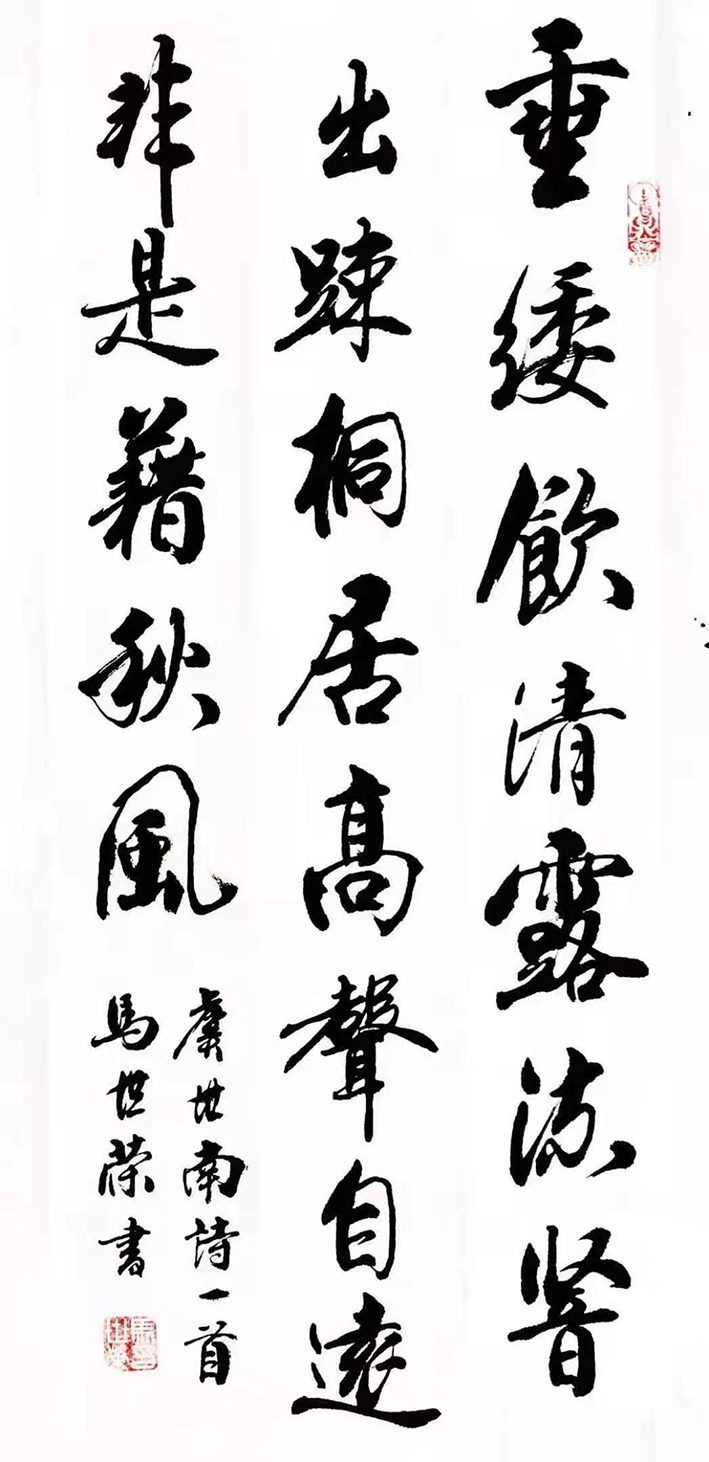 垂緌飲清露流響
出踈桐居髙聲自遠
非是藉秋風
虞世南詩一首
馬世榮書